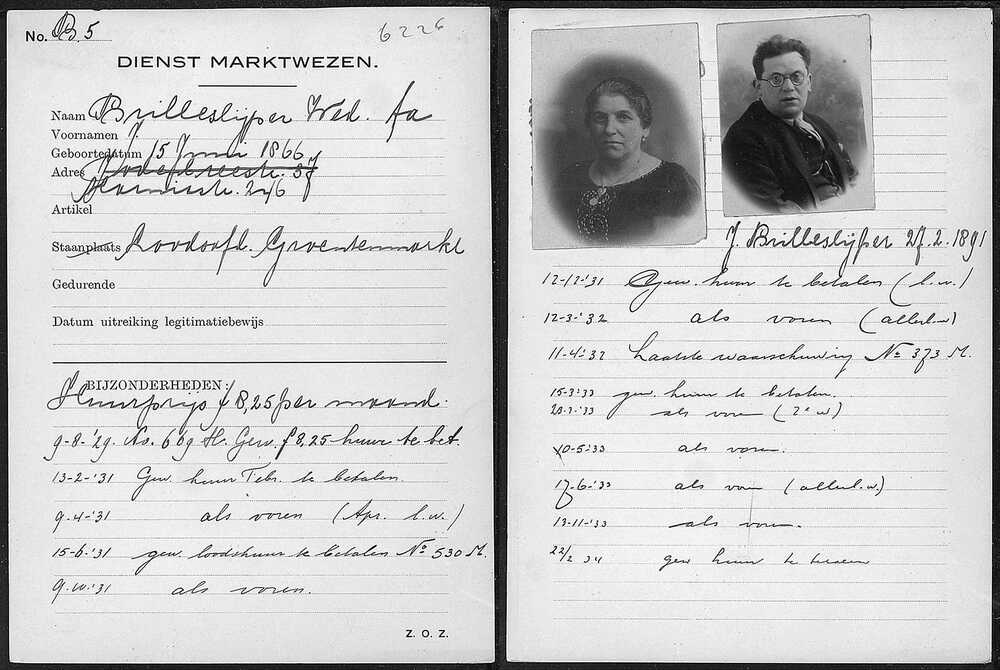 No. B. 5
6226
DIENST MARKTWEZEN.
Naam Brilleslijper Wed. fa
Voornamen J
Geboortedatum 15 Juni 1866
Adres Jodenbreestr. 37
246
Artikel
Staanplaats Loodsafd. Groentenmarkt
Gedurende
Datum uitreiking legitimatiebewijs
BIJZONDERHEDEN:
Huurprijs f 8,25 per maand.
9-8-'29. No. 669 H. Gew. f 8,25 huur te bet.
13-2-'31 Gew. huur Febr. te betalen.
9-4-'31 als voren (Apr. l.w.)
15-6-'31 gew. loodshuur te betalen No 530 M.
9.10.'31 als voren.
Z. O. Z.
J. Brilleslijper 27.2.1891
12-12-'31 Gew. huur te betalen (l.w.)
12-3-'32 als voren (allerl.w)
11-4-'32 Laatste waarschuwing No 373 M.
15-3-'33 gew. huur te betalen.
20-3-'33 als voren (2e w)
10-5-'33 als voren.
17-6-'33 als voren (allerl.w.)
13-11-'33 als voren.
22/2 34 gew huur te betalen